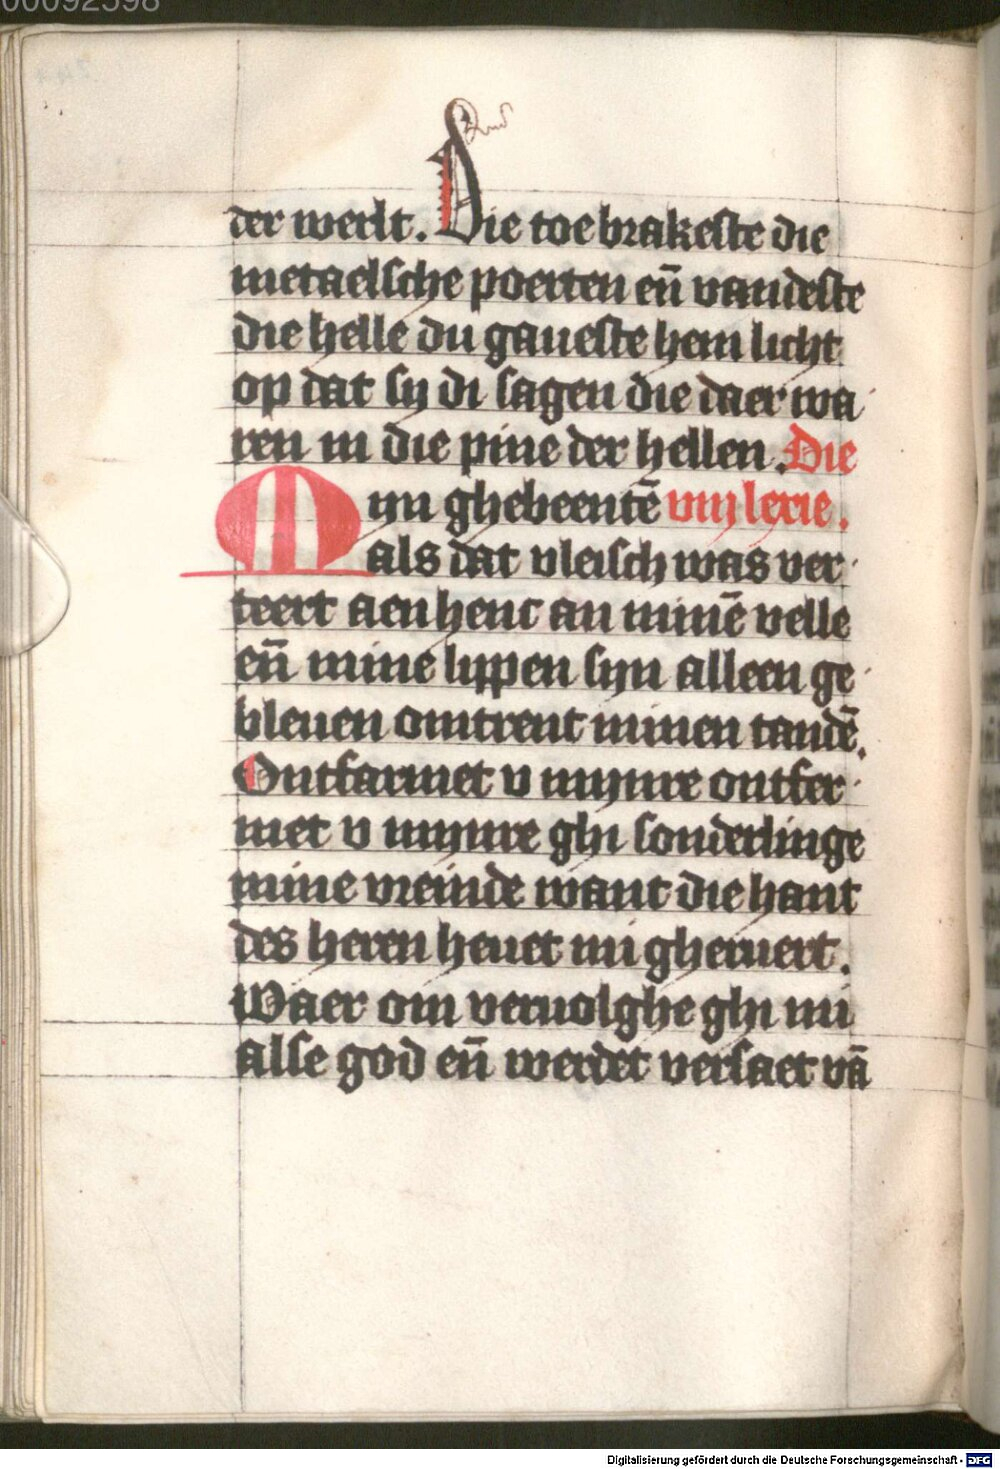 00092598
der werlt. Die toe brakeste die
metaelsche poerten eñ vandeste
die helle du gaueste hem licht
op dat sy di sagen die daer wa
ren in die pine der hellen. Die
Myn ghebeentē viij lexie.
als dat vleisch was ver
teert aen henc an minē velle
eñ mine lippen sijn alleen ge
bleuen omtrent minen tandē.
Ontfarmet v mynre ontfer
met v mynre ghi sonderlinge
mine vreinde want die hant
des heren heuet mi gheruert.
Waer om veruolghe ghi mi
alse god eñ werdet versaet vā
Digitalisierung gefördert durch die Deutsche Forschungsgemeinschaft - DFG